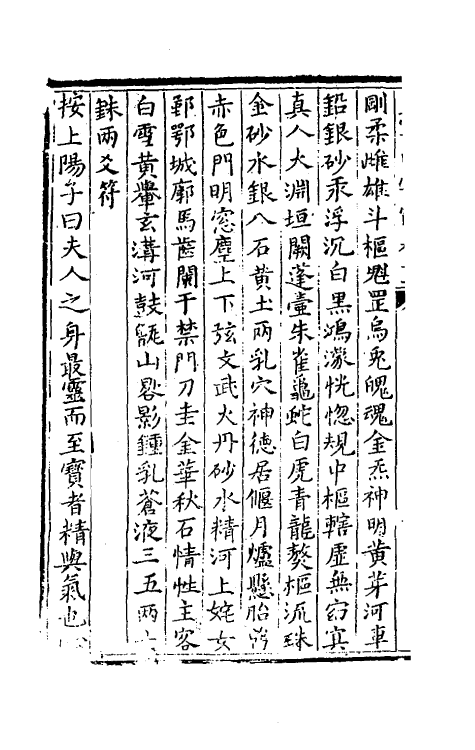 剛柔雌雄斗樞魁罡烏兎魄魂金炁神明黄芽河車
鉛銀砂汞浮沉白黒鴻濛恍惚規中樞轄虛無窈冥
真人大淵垣闕蓬壷朱雀龜蛇白虎青龍𤼵樞流珠
金砂水銀八石黄土兩乳穴神德居偃月爐懸胎
赤色門明窓塵上下弦文武火丹砂水精河上姹女
鄞鄂城廓馬齒闌干禁門刀圭金華秋石情性主客
白雪黄轝玄溝河鼓山晷影鍾乳蒼液三五兩
銖兩爻符
按上陽子曰夫人之身最靈而至寶者精與氣也